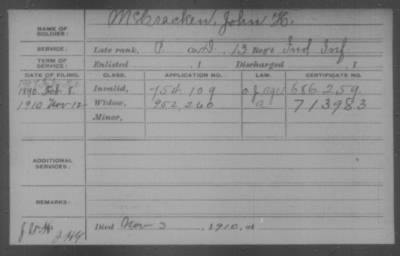 NAME OF SOLDIER: McCracken, John H.
SERVICE: Late rank, P Co. D. 13 Regt Ind Inf
TERM OF SERVICE: Enlisted , 1 Discharged , 1
DATE OF FILING. CLASS. APPLICATION NO. LAW. CERTIFICATE NO.
1890 Feb 8 Invalid, 754109 686259
1910 Nov 12 Widow, 952,240 a 713983
Minor,
ADDITIONAL SERVICES:
REMARKS:
Died Nov 3, 1910, at